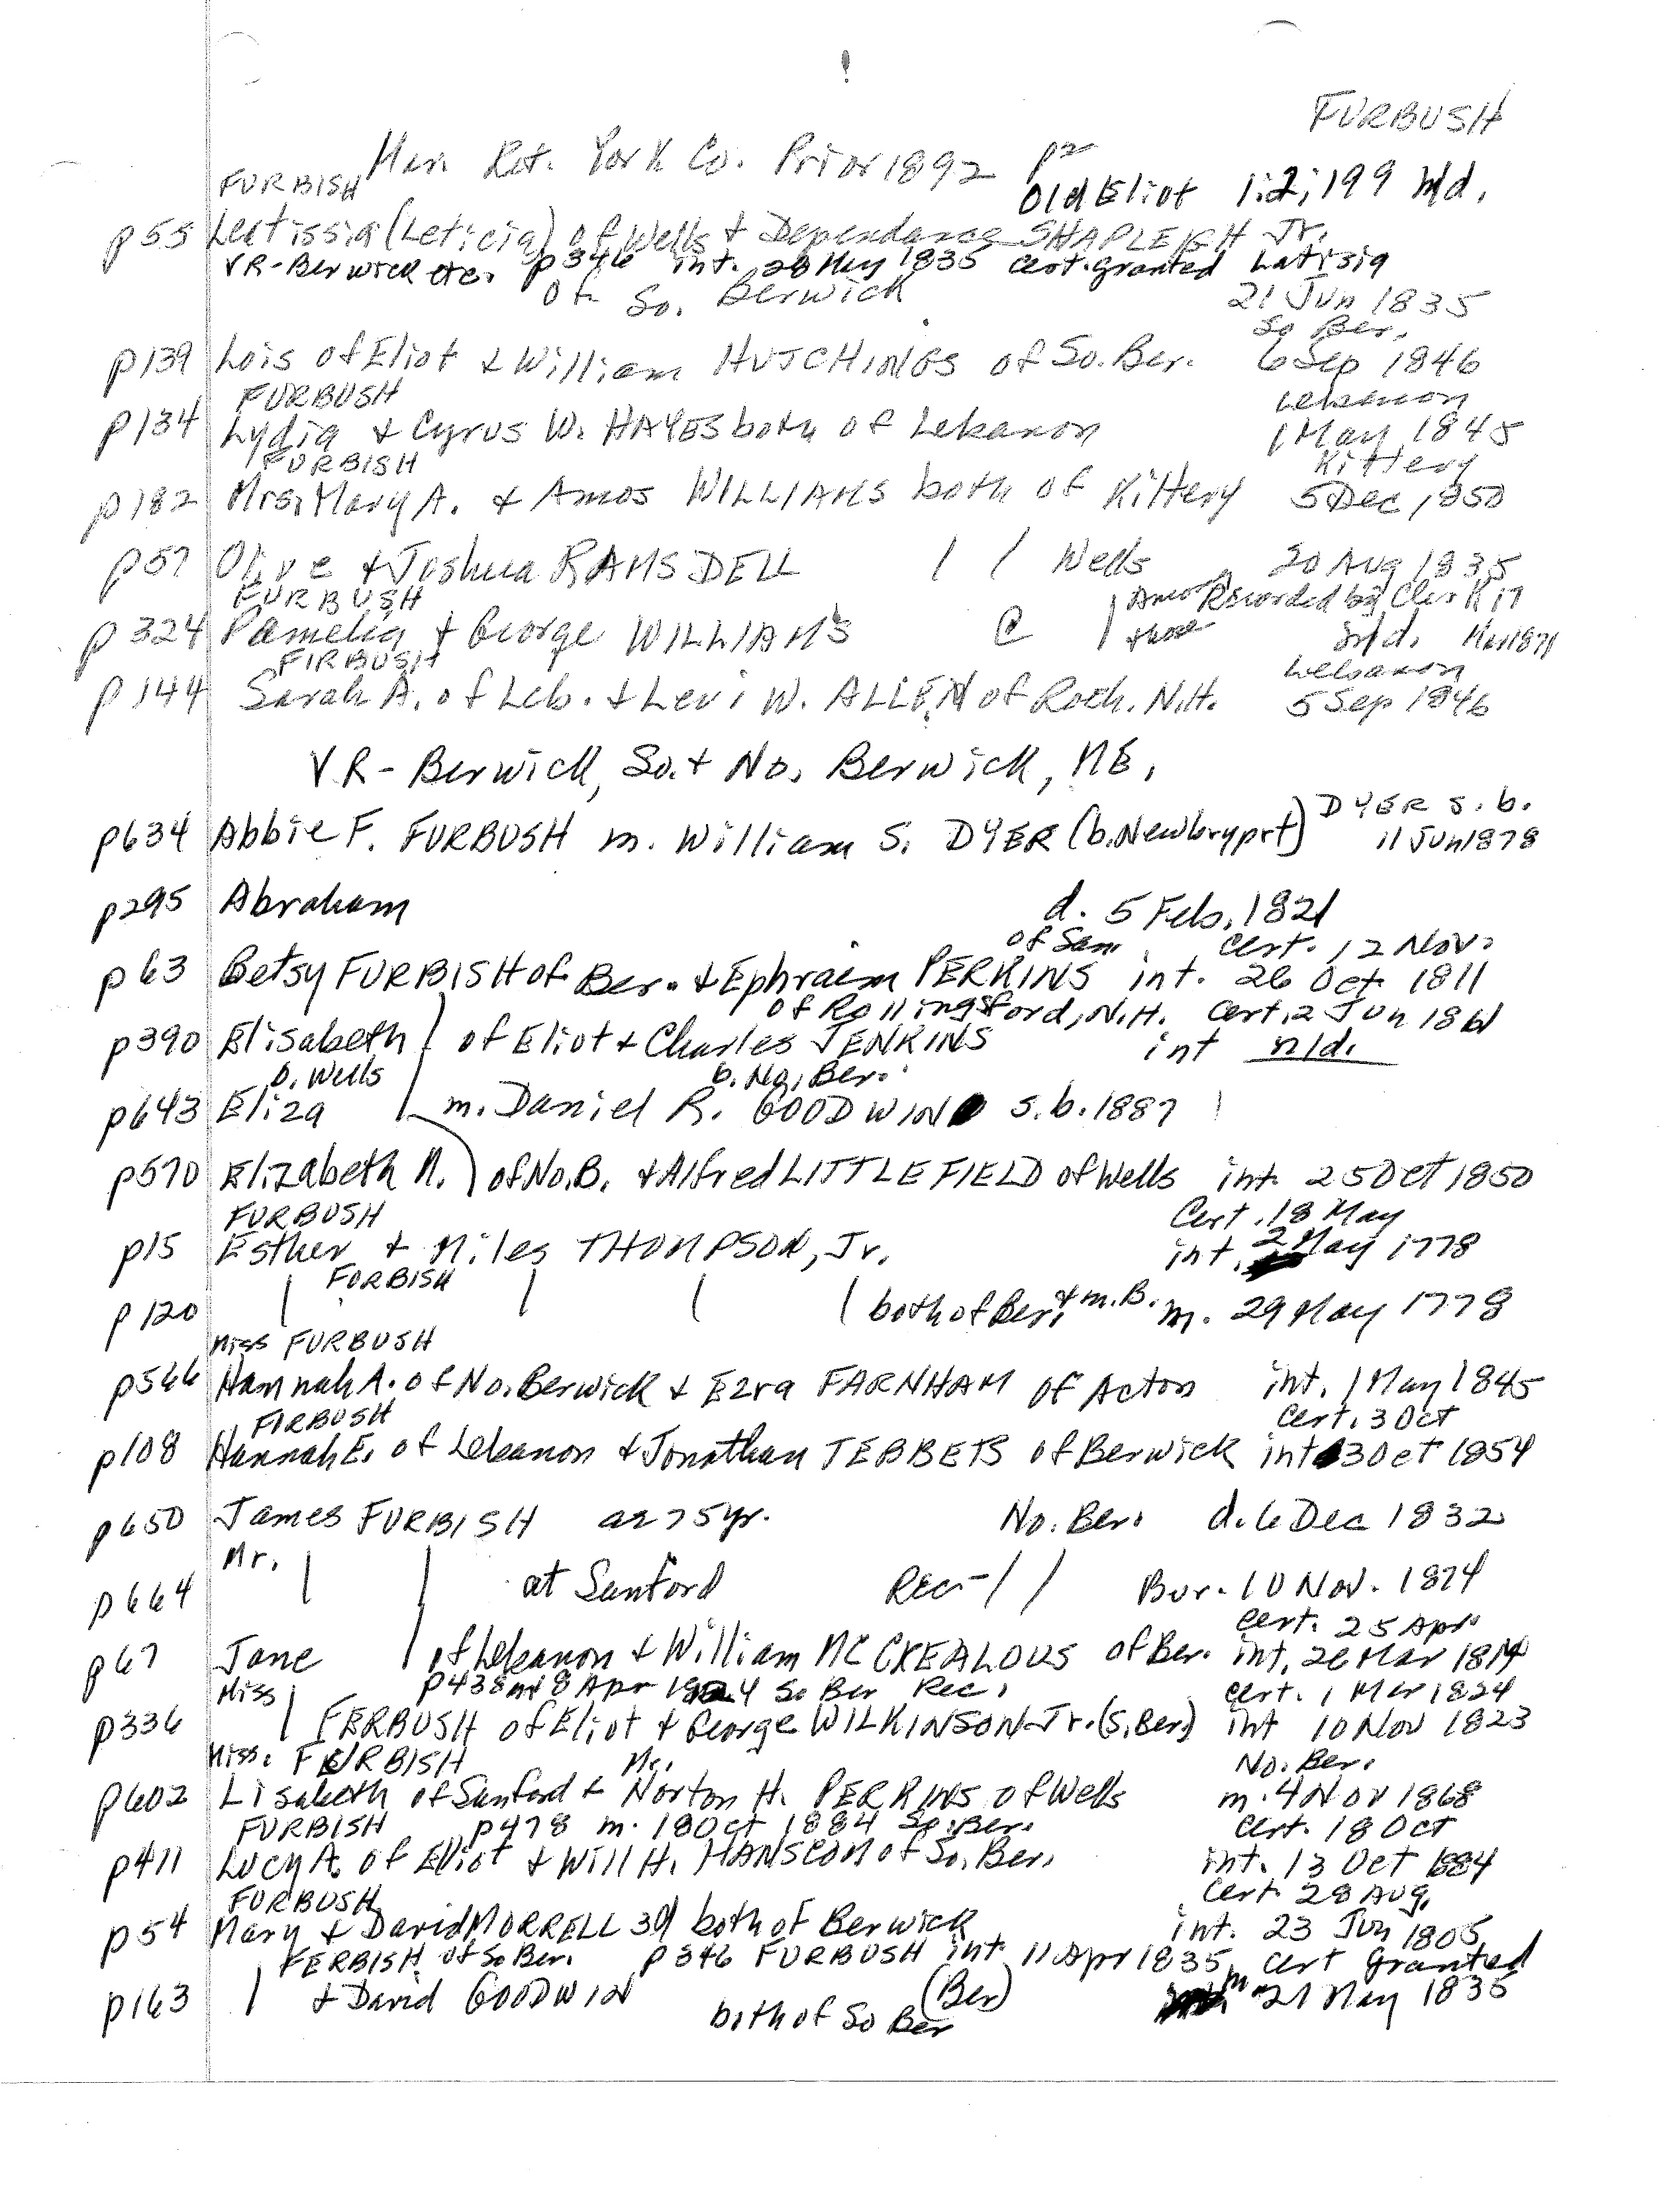 FURBUSH
Mar. Ret. York Co. Prior 1892 p2
FURBISH Old Eliot 1:2; 199 n/d.
p55 Leatissia (Leticia) of Wells + Dependance SHAPLEIGH Jr.
VR-Berwick etc. p346 int. 28 May 1835 cert. granted Latisia
of So. Berwick 21 Jun 1835
So Ber.
p139 Lois of Eliot + William HUTCHINGS of So. Ber. 6 Sep 1846
FURBUSH Lebanon
p134 Lydia + Cyrus W. HAYES both of Lebanon 1 May 1845
FURBISH Kittery
p182 Mrs. Mary A. + Amos WILLIAMS both of Kittery 5 Dec 1850
p57 Olive + Joshua RAMSDELL / / Wells 20 Aug 1835
FURBUSH Recorded by Clerk 17
p324 Pamelia + George WILLIAMS C n/d. Mar 1871
FIRBUSH Lebanon
p144 Sarah A. of Leb. + Levi W. ALLEN of Roch. N.H. 5 Sep 1846
VR - Berwick, So. + No. Berwick, ME.
DYER s.b.
p634 Abbie F. FURBUSH m. William S. DYER (b. Newbryprt) 11 Jun 1878
p295 Abraham d. 5 Feb. 1821
of San. cert. 12 Nov.
p63 Betsy FURBISH of Ber. + Ephraim PERKINS int. 26 Oct 1811
of Rollingsford, N.H. cert. 2 Jun 1861
p390 Elisabeth of Eliot + Charles JENKINS int n/d.
b. Wells b. No. Ber.
p643 Eliza m. Daniel R. GOODWIN s.b. 1887
p570 Elizabeth N. of No. B. + Alfred LITTLEFIELD of Wells int. 25 Oct 1850
FURBUSH Cert. 18 May
p15 Esther + Miles THOMPSON, Jr. int. 2 May 1778
FORBISH
p120 | | | | both of Ber. + m. B. m. 29 May 1778
Miss FURBUSH
p566 Hannah A. of No. Berwick + Ezra FARNHAM of Acton int. 1 May 1845
FIRBUSH cert. 3 Oct
p108 Hannah E. of Lebanon + Jonathan TEBBETS of Berwick int 3 Oct 1854
p650 James FURBISH ae 75 yr. No. Ber. d. 6 Dec 1832
Mr.
p664 | | at Sanford Rec - / / Bur. 10 Nov. 1874
cert. 25 Apr
p67 Jane of Lebanon + William MCCKEALOUS of Ber. int. 26 Mar 1814
Miss p438 m 8 Apr 1824 So Ber Rec. cert. 1 Mar 1824
p336 | FERBUSH of Eliot + George WILKINSON Jr. (S. Ber) int 10 Nov 1823
Miss. FURBISH Mr. No. Ber.
p602 Lisabeth of Sanford + Norton H. PERKINS of Wells m. 4 Nov 1868
FURBISH p478 m. 18 Oct 1884 So. Ber. cert. 18 Oct
p411 Lucy A. of Eliot + Will H. HANSCOM of So. Ber. int. 13 Oct 1884
FURBUSH Cert. 28 Aug.
p54 Mary + David MORRELL 3d both of Berwick int. 23 Jun 1805
FERBISH of So Ber. p346 FURBUSH int 11 Apr 1835, cert granted
p163 | + David GOODWIN (Ber) m 21 May 1835
both of So Ber